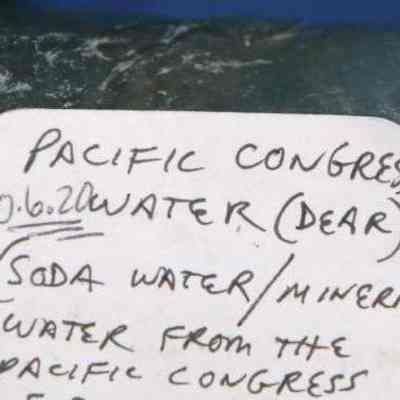 PACIFIC CONGRES
0.6.20 WATER (DEAR)
(SODA WATER/MINERA
WATER FROM THE
PACIFIC CONGRESS